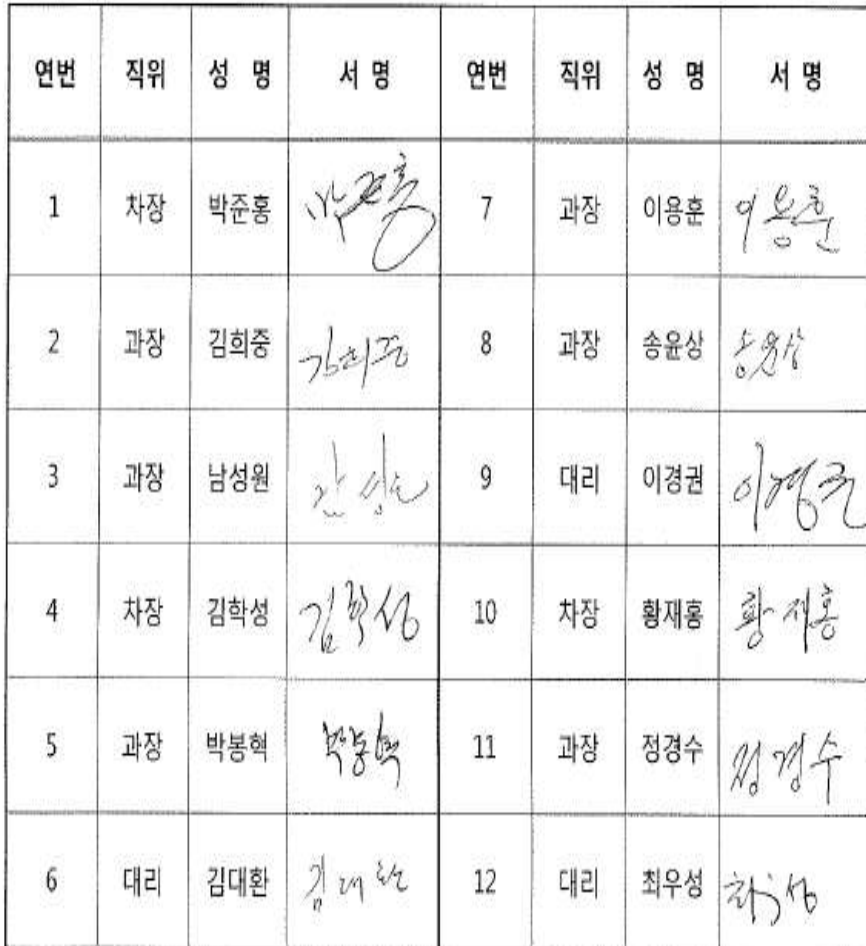 연번 직위 성 명 서 명 연번 직위 성 명 서 명
1 차장 박준홍 박준홍 7 과장 이용훈 이용훈
2 과장 김희중 김희중 8 과장 송윤상 송윤상
3 과장 남성원 9 대리 이경권 이경권
4 차장 김학성 김학성 10 차장 황재홍 황재홍
5 과장 박봉혁 박봉혁 11 과장 정경수 정경수
6 대리 김대환 김대환 12 대리 최우성 최우성